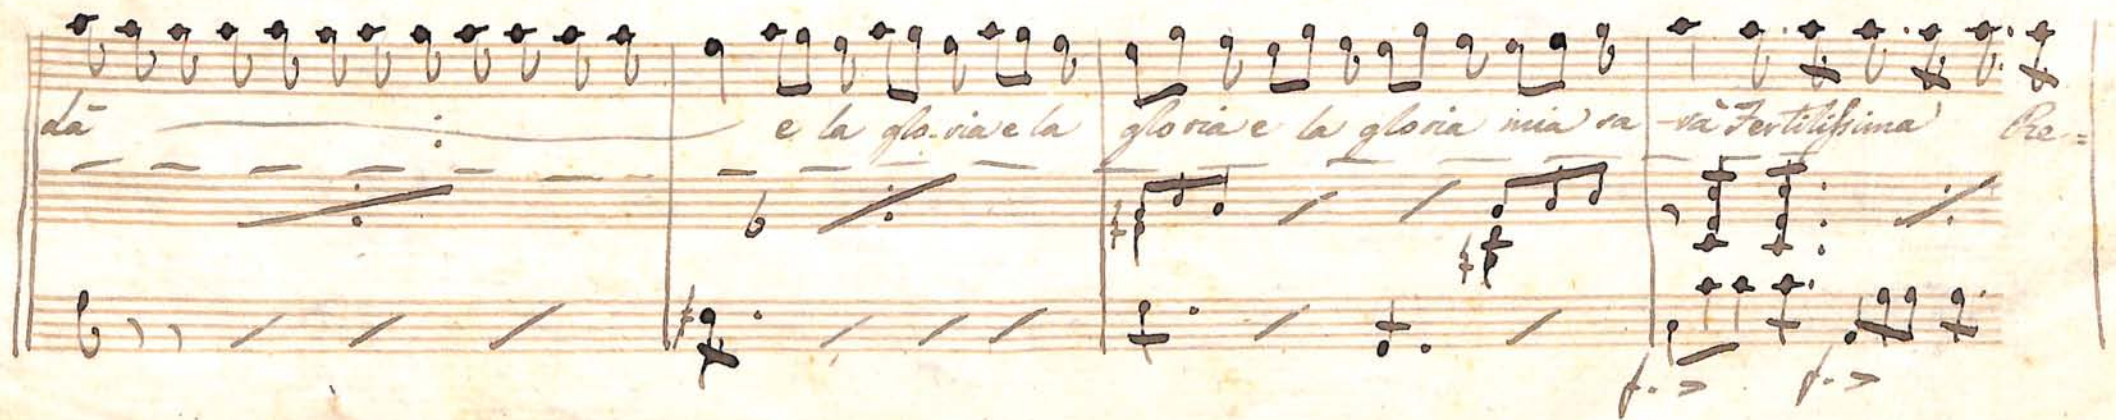 dà e la gloria e la gloria e la gloria mia sa -rà Fertilissima Re=
f. > f. >